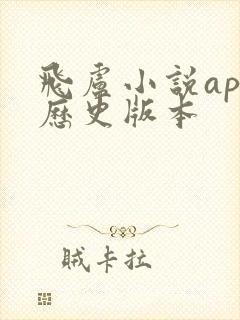 飛盧小説ap
歷史版本
賊卡拉